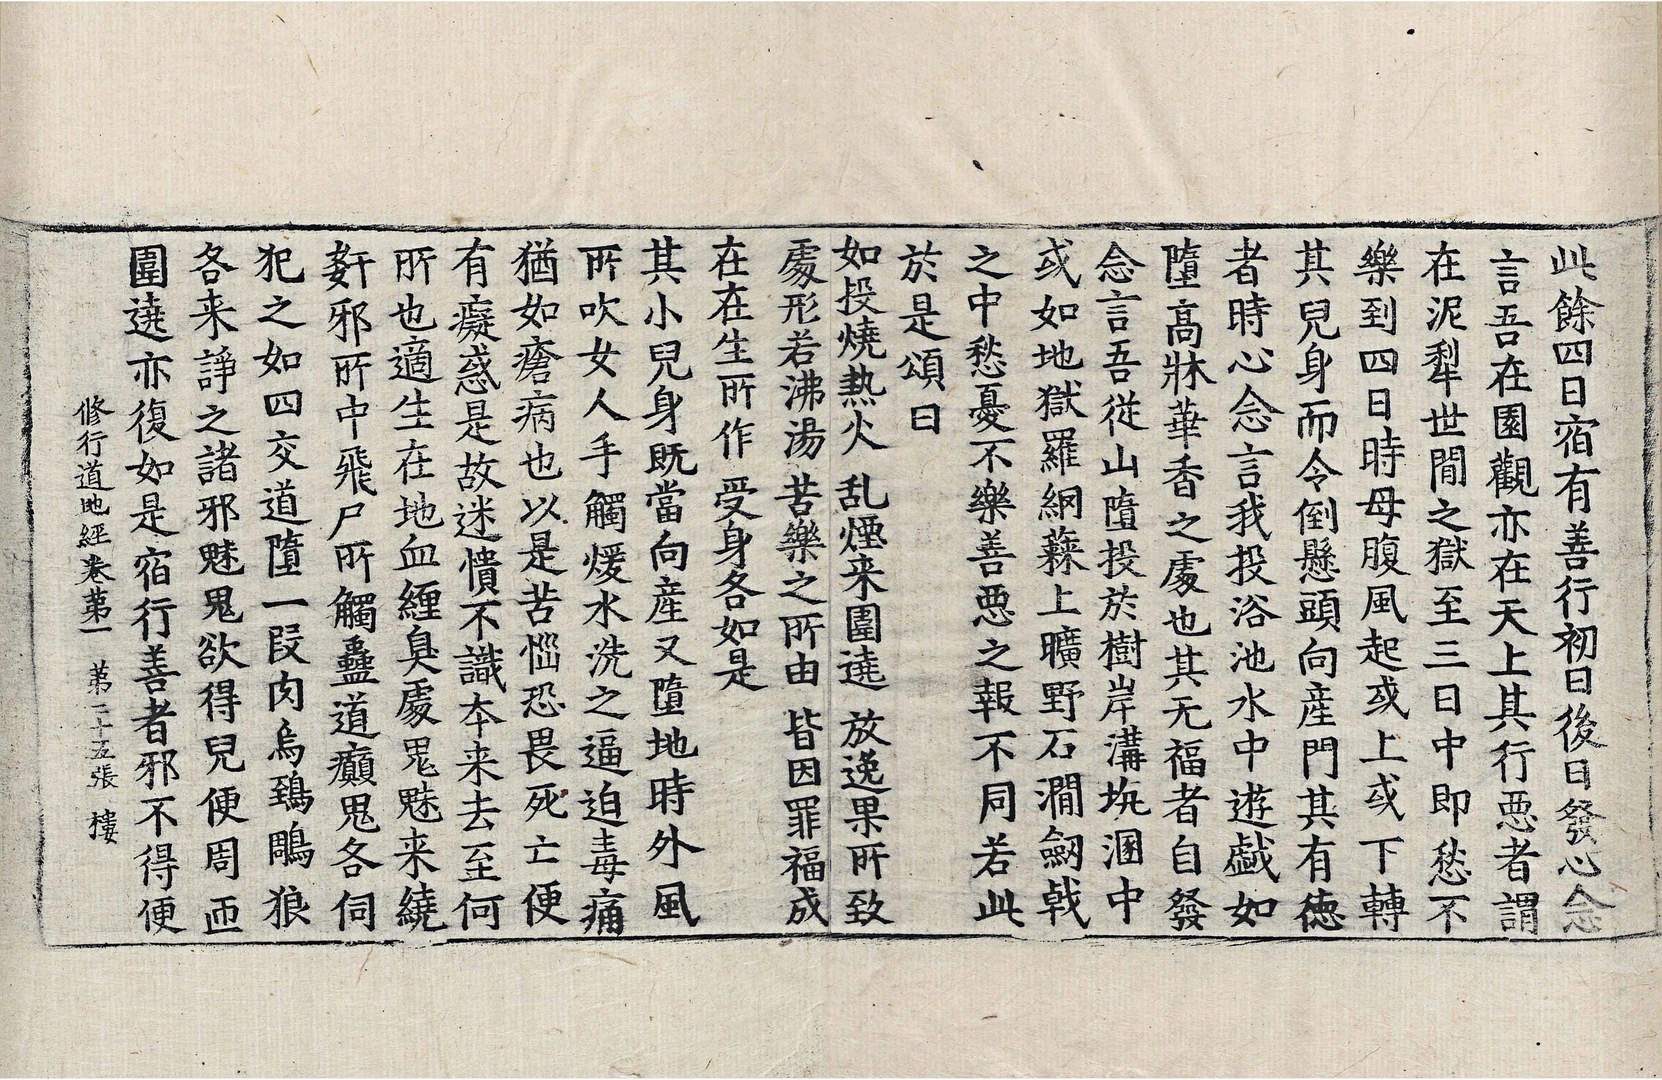 此餘四日宿有善行初日後日發心念
言吾在園觀亦在天上其行惡者謂
在泥犁世閒之獄至三日中即愁不
樂到四日時母腹風起或上或下轉
其兒身而令倒懸頭向產門其有德
者時心念言我投浴池水中遊戲如
墮高牀華香之處也其无福者自發
念言吾從山墮投於樹岸溝坑溷中
或如地獄羅網蕀上曠野石澗劒戟
之中愁憂不樂善惡之報不同若此
於是頌曰
如投燒熱火 乱煙来圍遶 放逸果所致
處形若沸湯 苦樂之所由 皆因罪福成
在在生所作 受身各如是
其小兒身既當向產又墮地時外風
所吹女人手觸煖水洗之逼迫毒痛
猶如瘡病也以是苦惱恐畏死亡便
有癡惑是故迷憒不識本来去至何
所也適生在地血纏臭處鬼魅来繞
姧邪所中飛尸所觸蠱道癲鬼各伺
犯之如四交道墮一段肉烏鵄鵰狼
各来諍之諸邪魅鬼欲得兒便周匝
圍遶亦復如是宿行善者邪不得便
修行道地經卷第一 第二十五張 樓